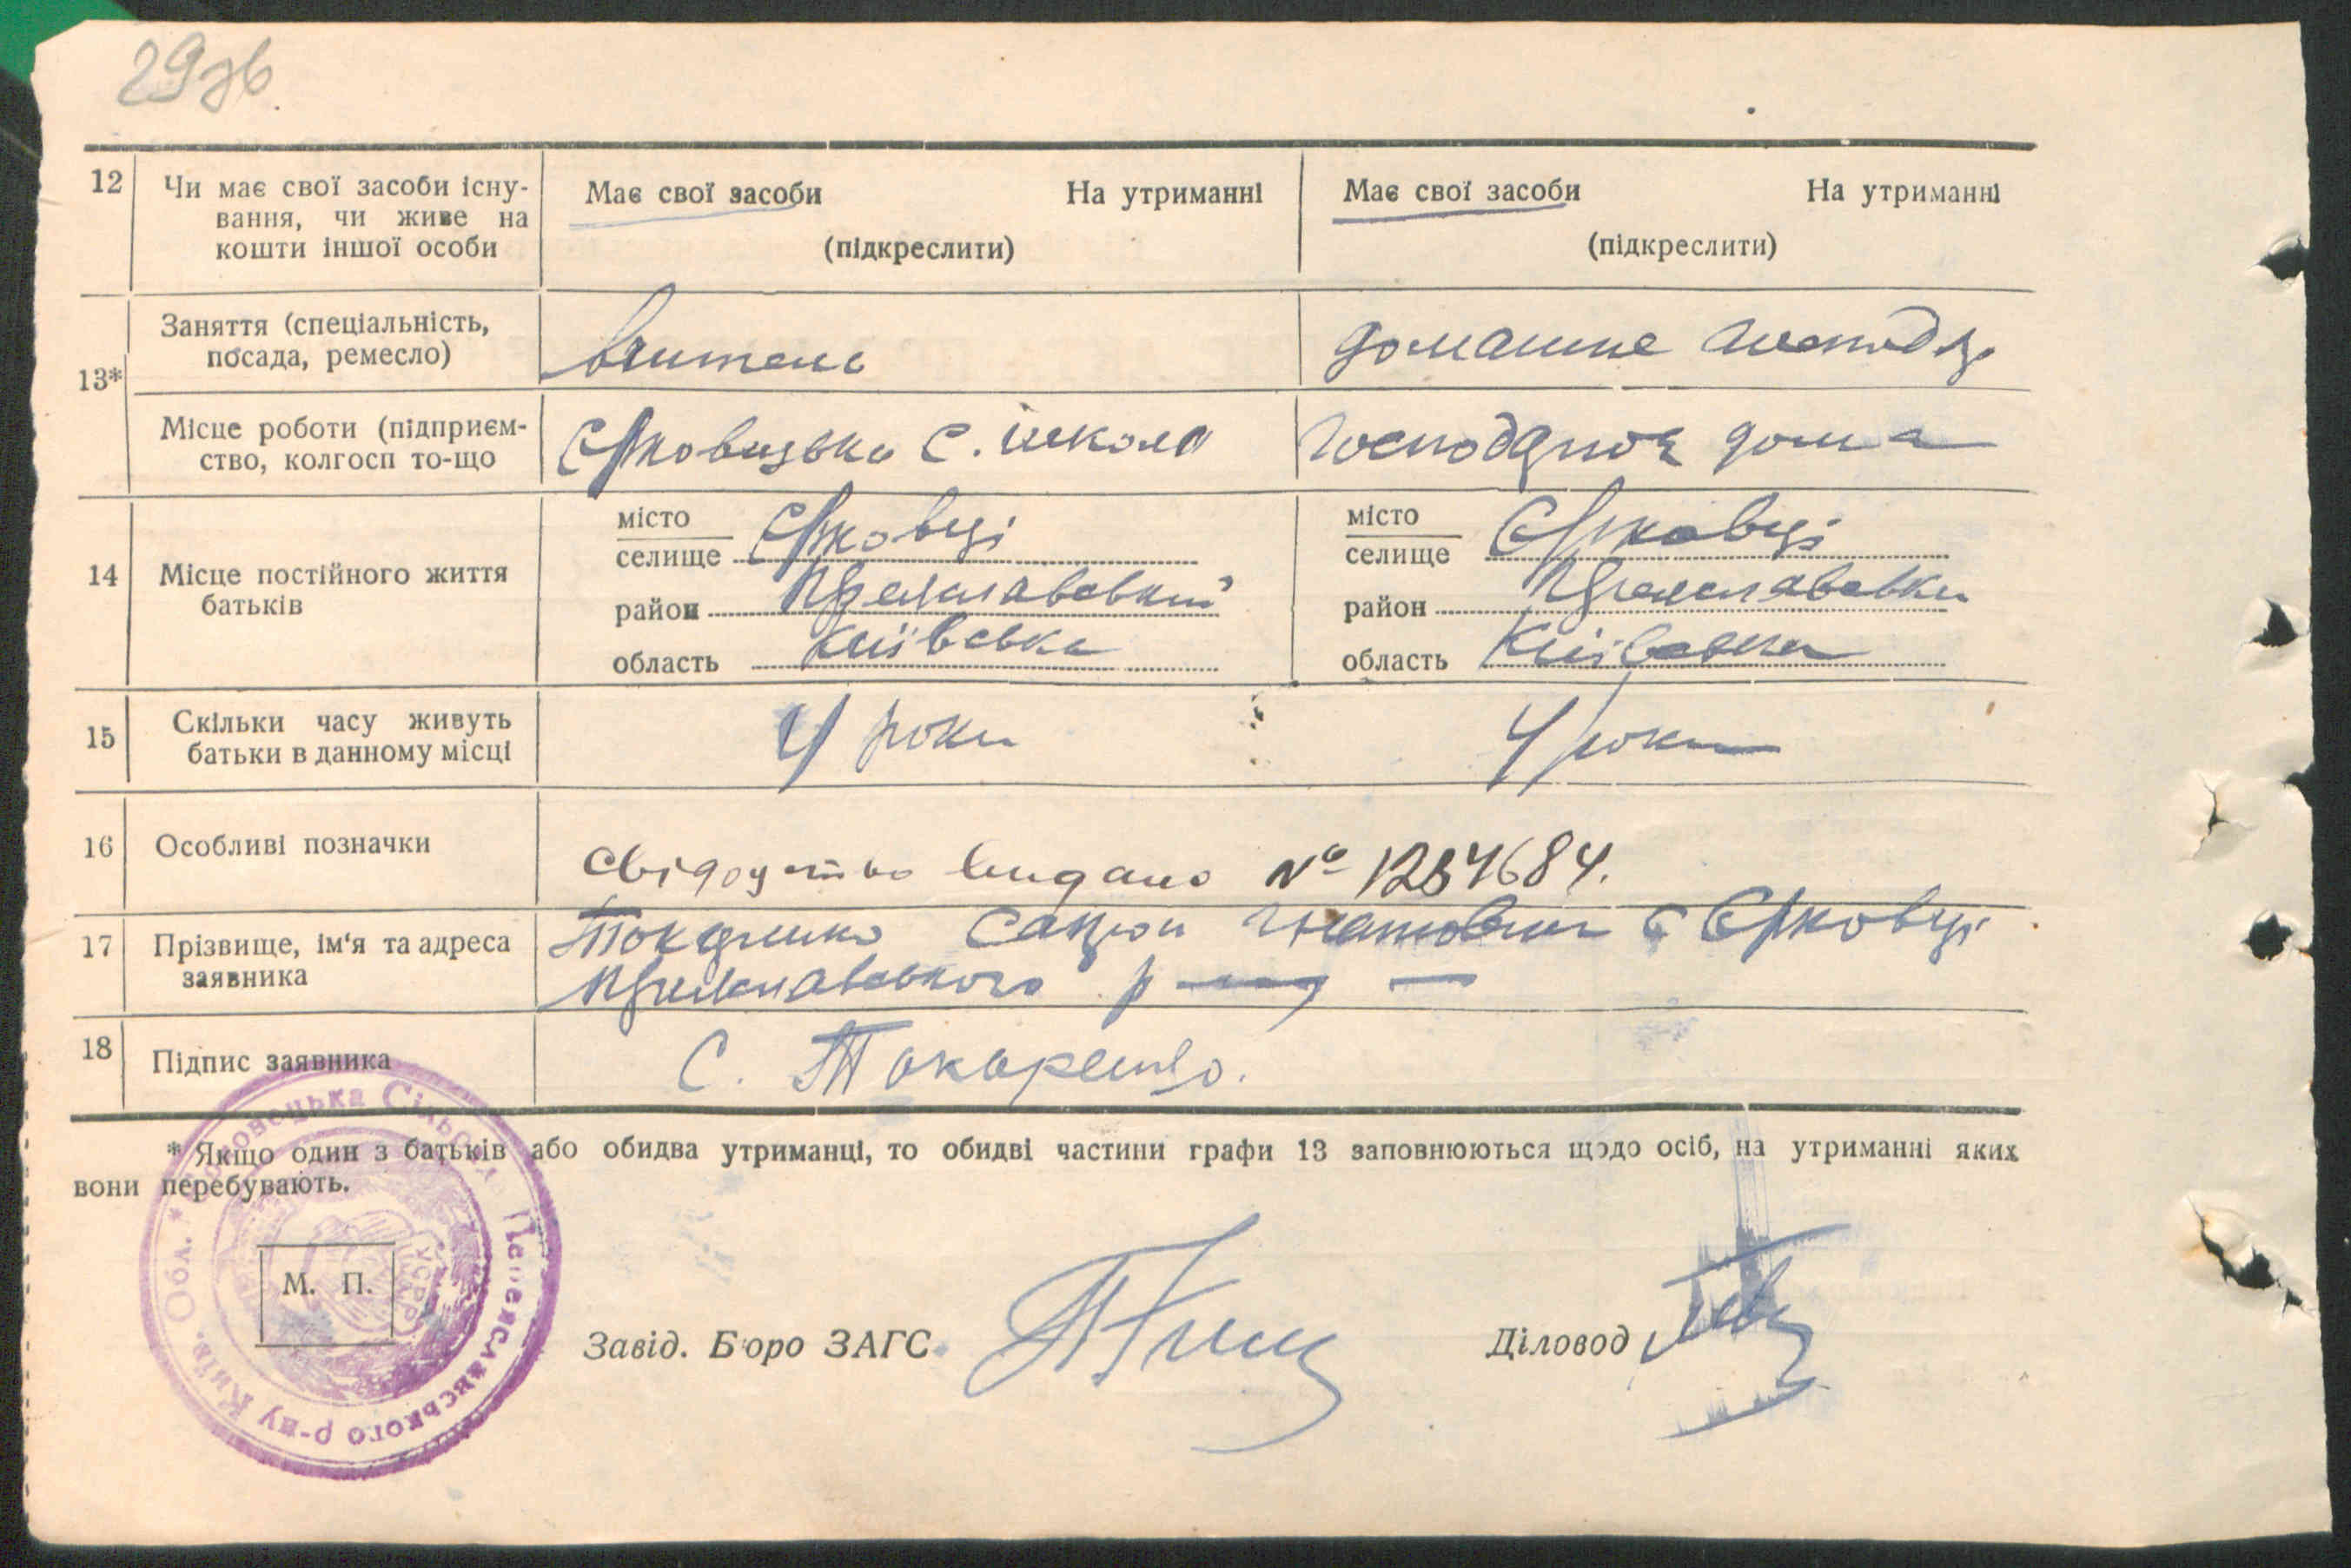 29зв
12 Чи має свої засоби існу- Має свої засоби На утриманні Має свої засоби На утриманні
вання, чи живе на
кошти іншої особи (підкреслити) (підкреслити)
Заняття (спеціальність,
посада, ремесло) вчитель домашне
13*
Місце роботи (підприєм-
ство, колгосп то-що Єрковецька с. школа дома
місто місто
селище Єрковці селище Єрковці
14 Місце постійного життя
батьків
район Переяславський район Переяславський
область Київська область Київська
15 Скільки часу живуть 4 роки 4 роки
батьки в данному місці
16 Особливі позначки
Свідоцтво видано № 1284684.
17 Прізвище, ім'я та адреса Токаренко Ігнатович с Єрковці
заявника Переяславського р
18 Підпис заявника С. Токаренко.
* Якщо один з батьків або обидва утриманці, то обидві частини графи 13 заповнюються щодо осіб, на утриманні яких
вони перебувають.
Єрковецька Сільська Переяславського р-ну Київ. Обл. *
УСРР
М. П.
Завід. Бюро ЗАГС
Діловод